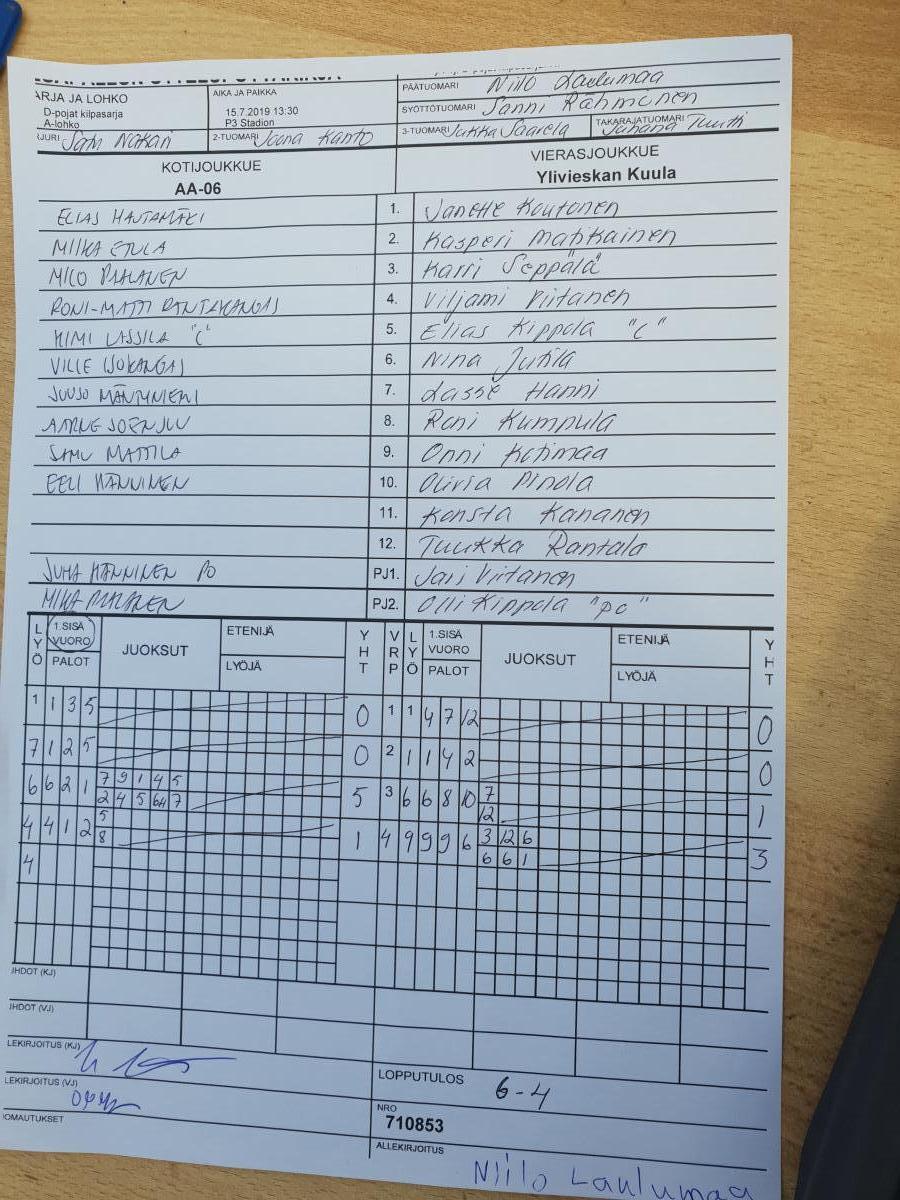 PÄÄTUOMARI Niilo Laulumaa
ARJA JA LOHKO AIKA JA PAIKKA SYÖTTÖTUOMARI Sanni Rähminen
D-pojat kilpasarja 15.7.2019 13:30
A-lohko P3 Stadion
2-TUOMARI Joona Kanto 3-TUOMARI Jukka Saarela TAKARAJATUOMARI Juhana Tuutti
KOTIJOUKKUE VIERASJOUKKUE
AA-06 Ylivieskan Kuula
ELIAS HAUTAMÄKI 1. Janette Koutonen
MIIKA ETULA 2. Kasperi Matikainen
MILO PAALANEN 3. Karri Seppälä
RONI-MATTI RANTAKANGAS 4. Viljami Viitanen
KIMI LASSILA "C" 5. Elias Kippola "C"
VILLE ISOKANGAS 6. Nina Jutila
JUUSO MÄNTYNIEMI 7. Lasse Hanni
AARNE JOENSUU 8. Roni Kumpula
SAMU MATTILA 9. Onni Kotimaa
EELI HÄNNINEN 10. Olivia Pinola
11. Konsta Kananen
12. Tuukka Rantala
JUHA HÄNNINEN PO PJ1. Jari Viitanen
MIKA PAALANEN PJ2. Olli Kippola "pc"
LYÖ 1.SISÄ VUORO PALOT JUOKSUT ETENIJÄ LYÖJÄ YHT VRP LYÖ 1.SISÄ VUORO PALOT JUOKSUT ETENIJÄ LYÖJÄ YHT
1 1 3 5 0 1 1 4 7 12 0
7 1 2 5 0 2 1 1 4 2 0
6 6 2 1 7 9 1 4 5 5 3 6 6 8 10 7 1
2 4 5 6 7 12
4 4 1 2 5 1 4 9 9 9 6 3 12 6 3
8 6 6 1
4
HDOT (KJ)
HDOT (VJ)
LEKIRJOITUS (KJ)
LEKIRJOITUS (VJ)
LOPPUTULOS 6-4
NRO
710853
OMAUTUKSET
ALLEKIRJOITUS
Niilo Laulumaa